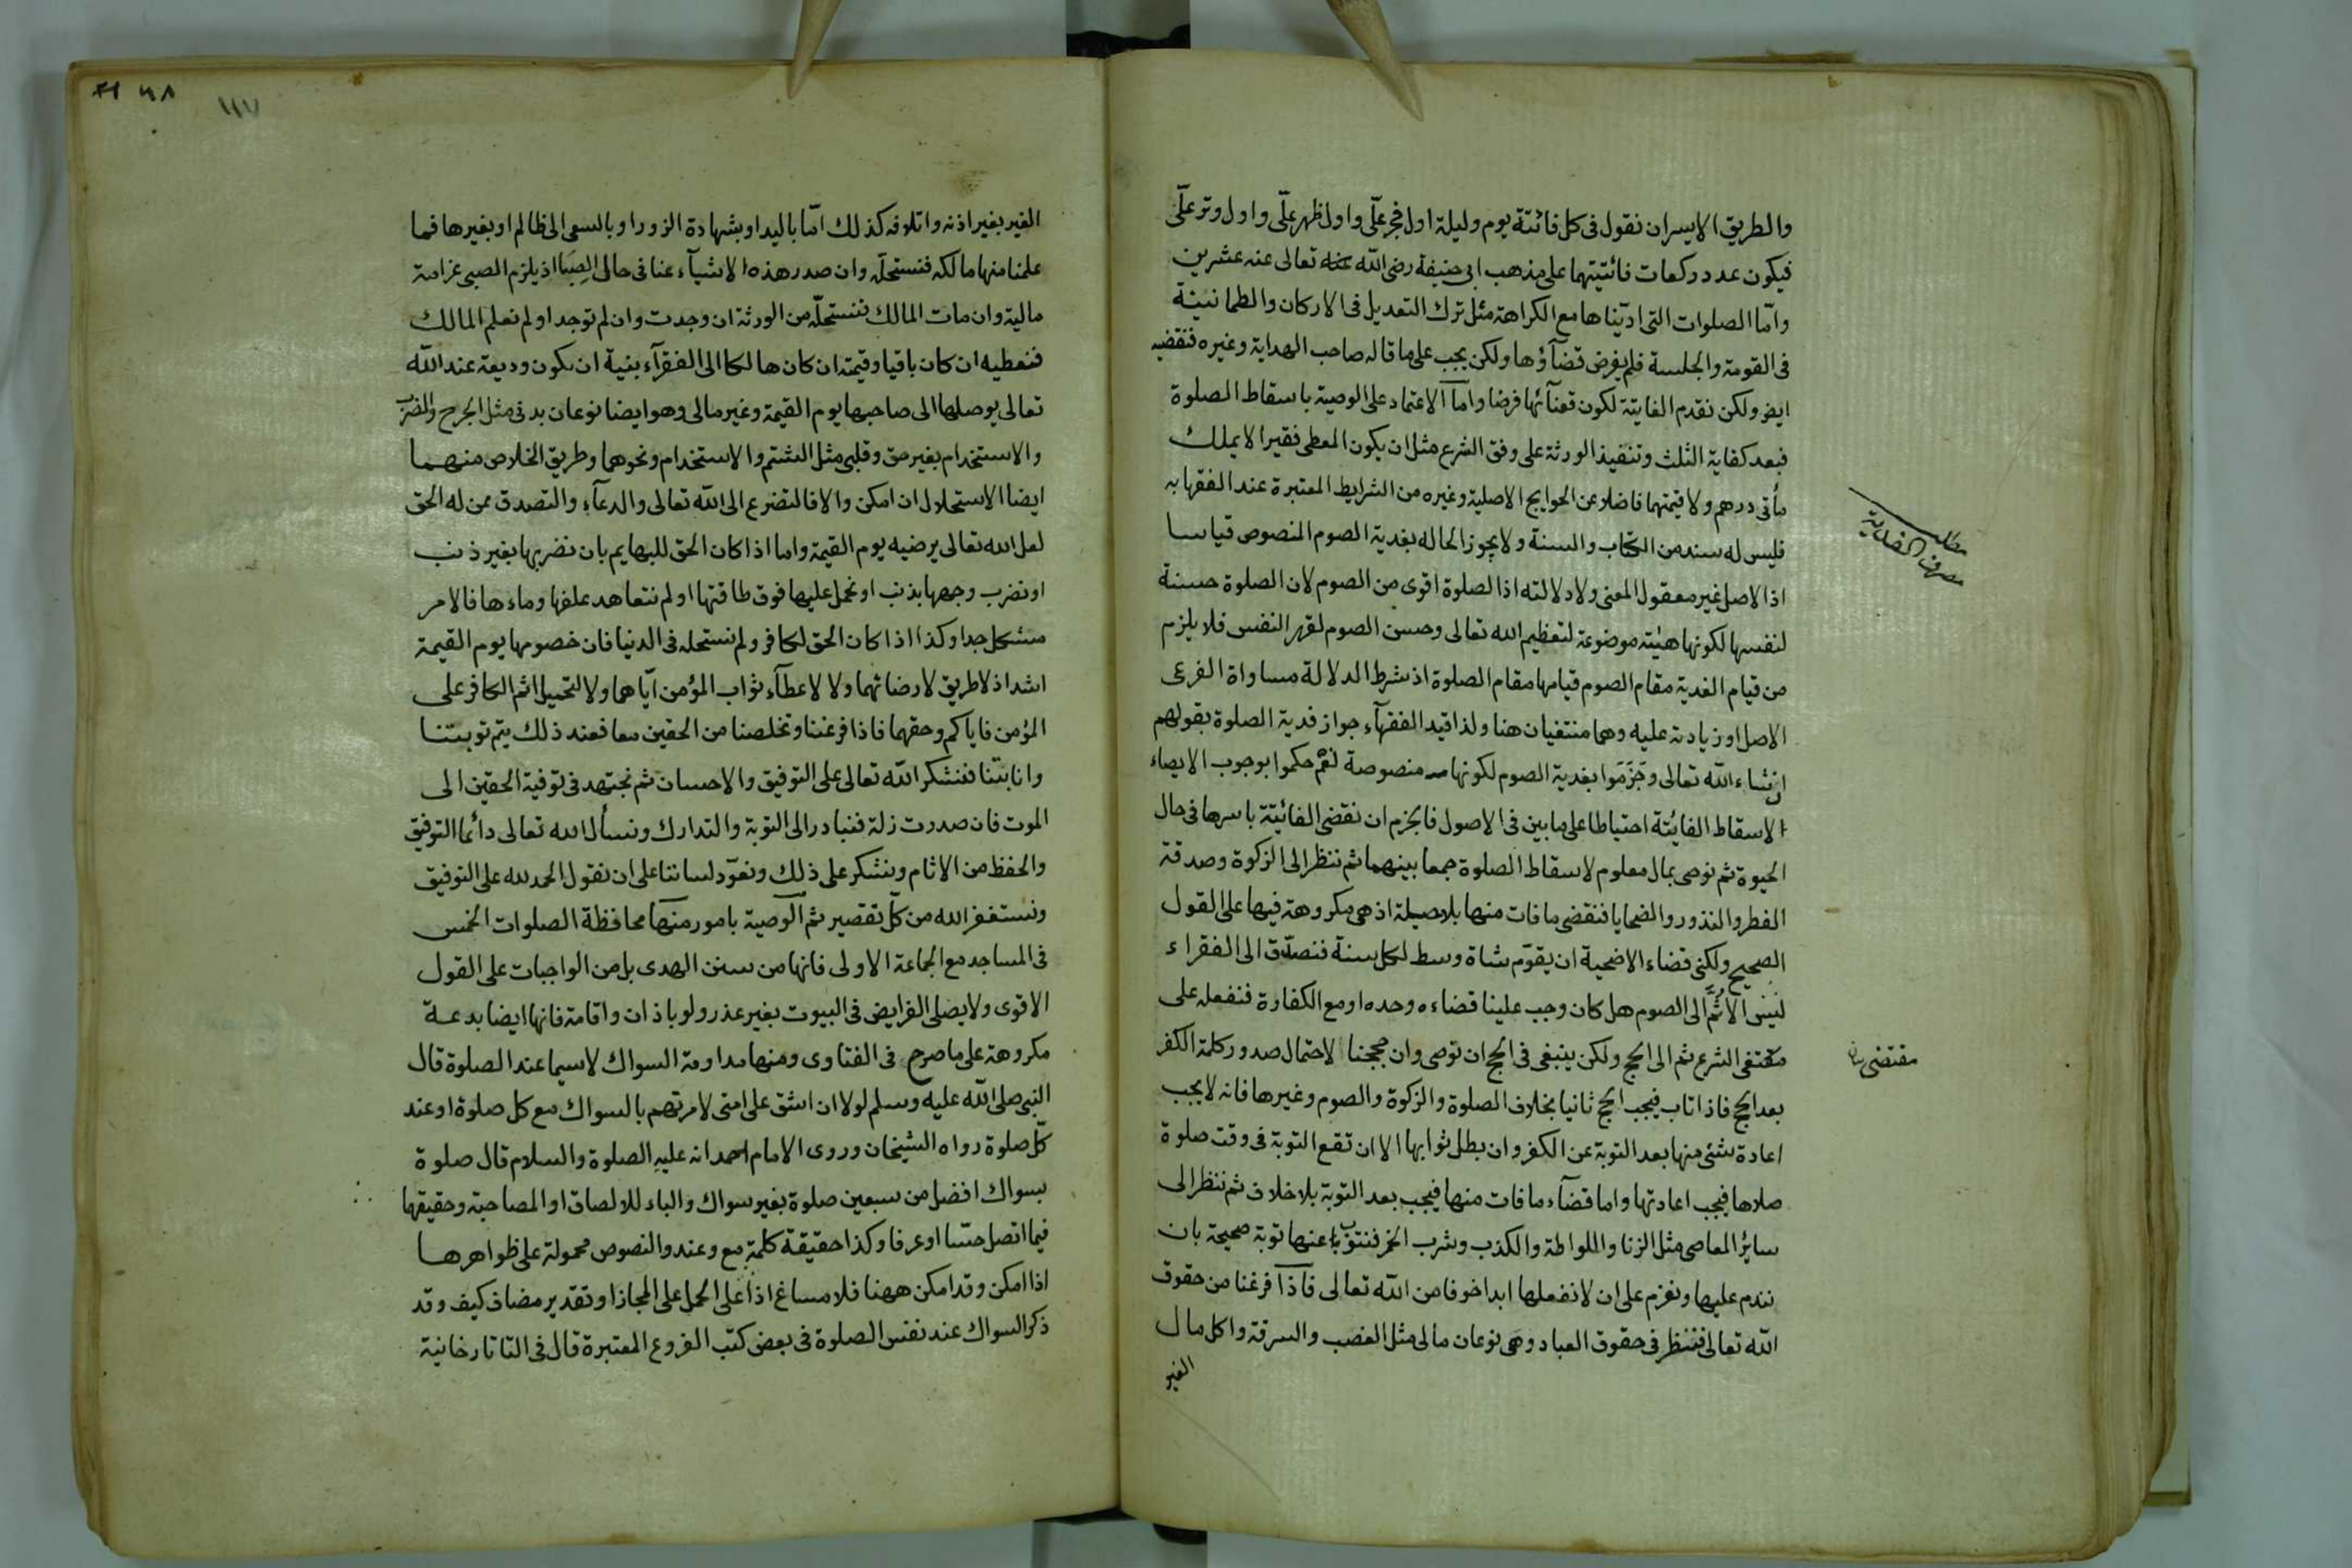 والطريق الايسر ان نقول فى كل فائتة يوم وليلة اول فجر علّى واول ظهر علّى واول وتر علّى
فيكون عدد ركعات فائتيتهما على مذهب ابى حنيفة رضى الله عنه تعالى عنه عشرين
وامّا الصلوات التى ادّيناها مع الكراهة مثل ترك التعديل فى الاركان والطمانينة
فى القومة والجلسة فلم يفرض قضآؤها ولكن يجب على ما قاله صاحب الهداية وغيره فنقضيه
ايض ولكن نقدم الفايتة لكون قضآئها فرضا وامّا الاعتماد على الوصية باسقاط الصلوة
فبعد كفاية الثلث وتنفيذ الورثة على وفق الشرع مثل ان يكون المعطى فقيرا لا يملك
مأتى درهم ولا قيمتهما فاضلا عن الحوايج الاصلية وغيره من الشرايط المعتبرة عند الفقها به
فليس له سند من الكتاب والسنة ولا يجوز الحاله بفدية الصوم المنصوص قياسا
اذ الاصل غير معقول المعنى ولا دلالته اذ الصلوة اقوى من الصوم لان الصلوة حسنة
لنفسها لكونها هيئته موضوعة لتعظيم الله تعالى وحسن الصوم لقهر النفس فلا يلزم
من قيام الفدية مقام الصوم قيامها مقام الصلوة اذ شرط الدلالة مساواة الفرعى
الاصل او زيادته عليه وهما منتفيان هنا ولذا قيد الفقهآء جواز فدية الصلوة بقولهم
ان شاء الله تعالى وجَزَمَوا بفدية الصوم لكونها منصوصة نعم حكموا بوجوب الايصاء
الاسقاط الفايئتة احتياطا على ما بين فى الاصول فالجزم ان نقضى الفائيتة باسرها فى حال
الحيوة ثم نوصى بمال معلوم لاسقاط الصلوة جمعا بينهما ثم ننظر الى الزكوة وصدقة
الفطر والنذور والضحايا فنقضى ما فات منها بلا حيلة اذ هى مكروهة فيها على القول
الصحيح ولكن قضاء الاضحية ان يقوّم شاة وسط لكل سنة فنصدّق الى الفقراء
ليس الّا ثُمَّ الى الصوم هل كان وجب علينا قضاءه وحده او مع الكفارة فنفعله على
مقتفى الشرع ثم الى الحج ولكن ينبغى فى الحج ان توصى وان حججنا لاحتمال صدور كلمة الكفر
بعد الحج فاذا تاب فيجب الحج ثانيا بخلاف الصلوة والزكوة والصوم وغيرها فانه لا يجب
اعادة شئى منها بعد التوبة عن الكفر وان بطل ثوابها الا ان تقع التوبة فى وقت صلوة
صلاها فيجب اعادتها واما قضآء ما فات منها فيجب بعد التوبة بلا خلاف ثم ننظر الى
سايرُ المعاصى مثل الزنا واللواطة والكذب وشرب الخمر فنتوب عنها توبة صحيحة بان
نندم عليها ونعزم على ان لا نفعلها ابدا خوفا من الله تعالى فاذا فرغنا من حقوق
الله تعالى فننظر فى حقوق العباد وهى نوعان مالى مثل الغصب والسرقة واكل مال
الغير
مطلب
مصرف الفدية
مقتضى
١١٧
الغير بغير اذنه واتلافه كذلك امّا باليد او بشهادة الزور او بالسعى الى ظالم او بغيرها فما
علمنا منها مالكه فنستحلّه وان صدر هذه الاشيآء عنا فى حالى الصِبَا اذ يلزم الصبى غرامة
مالية وان مات المالك فنستحلّه من الورثة ان وجدت وان لم توجد او لم نعلم المالك
فنعطيه ان كان باقيا وقيمته ان كان هالكا الى الفقرآء بنية ان يكون وديعة عند الله
تعالى يوصلها الى صاحبها يوم القيمة وغير مالى وهو ايضا نوعان بدنى مثل الجرح والضرب
والاستخدام بغير حق وقلبى مثل الشتم والاستخدام ونحوهما وطريق الخلاص منهما
ايضا الاستحلال ان امكن والا فالتضرع الى الله تعالى والدعآء والتصدق عمن له الحق
لعل الله تعالى يرضيه يوم القيمة واما اذا كان الحق للبهايم بان نضربها بغير ذنب
او نضرب وجهها بذنب او نحمل عليها فوق طاقتها او لم نتعاهد علفها وماءها فالامر
مشكل جدا وكذا اذا كان الحق لكافر ولم نستحله فى الدنيا فان خصومها يوم القيمة
اشد اذ لا طريق لارضائهما ولا لاعطآء ثواب المؤمن ايّاهما ولا لتحميل اثم الكافر على
المؤمن فاياكم وحقهما فاذا فرغنا وتخلصنا من الحقين معا فعند ذلك يتم توبتنا
وانابتنا فنشكر الله تعالى على التوفيق والاحسان ثم نجتهد فى توفية الحقين الى
الموت فان صدرت زلة فنبادر الى التوبة والتدارك ونسأل الله تعالى دائما التوفيق
والحفظ من الاثام ونشكر على ذلك ونعوّد لساننا على ان نقول الحمد لله على التوفيق
ونستغفر الله من كلّ تقصير ثم الوصية بامور منها محافظة الصلوات الخمس
فى المساجد مع الجماعة الاولى فانها من سنن الهدى بل من الواجبات على القول
الاقوى ولا يصلى الفرايض فى البيوت بغير عذر ولو باذان واقامة فانها ايضا بدعة
مكروهة على ما صرح فى الفتاوى ومنها مداومة السواك لاسيما عند الصلوة قال
النبى صلى الله عليه وسلم لولا ان اشق على امتى لامرتهم بالسواك مع كل صلوة او عند
كلّ صلوة رواه الشيخان وروى الامام احمد انه عليه الصلوة والسلام قال صلوة
بسواك افضل من سبعين صلوة بغير سواك والباء للالصاق او المصاحبة وحقيقتها
فيما اتصل حسّا او عرفا وكذا حقيقة كلمة مع وعند والنصوص محمولة على ظواهرها
اذا امكن وقد امكن ههنا فلا مساغ اذاً على الحمل على المجاز او تقدير مضاف كيف وقد
ذكر السواك عند نفس الصلوة فى بعض كتب الفروع المعتبرة قال فى التاتارخانية